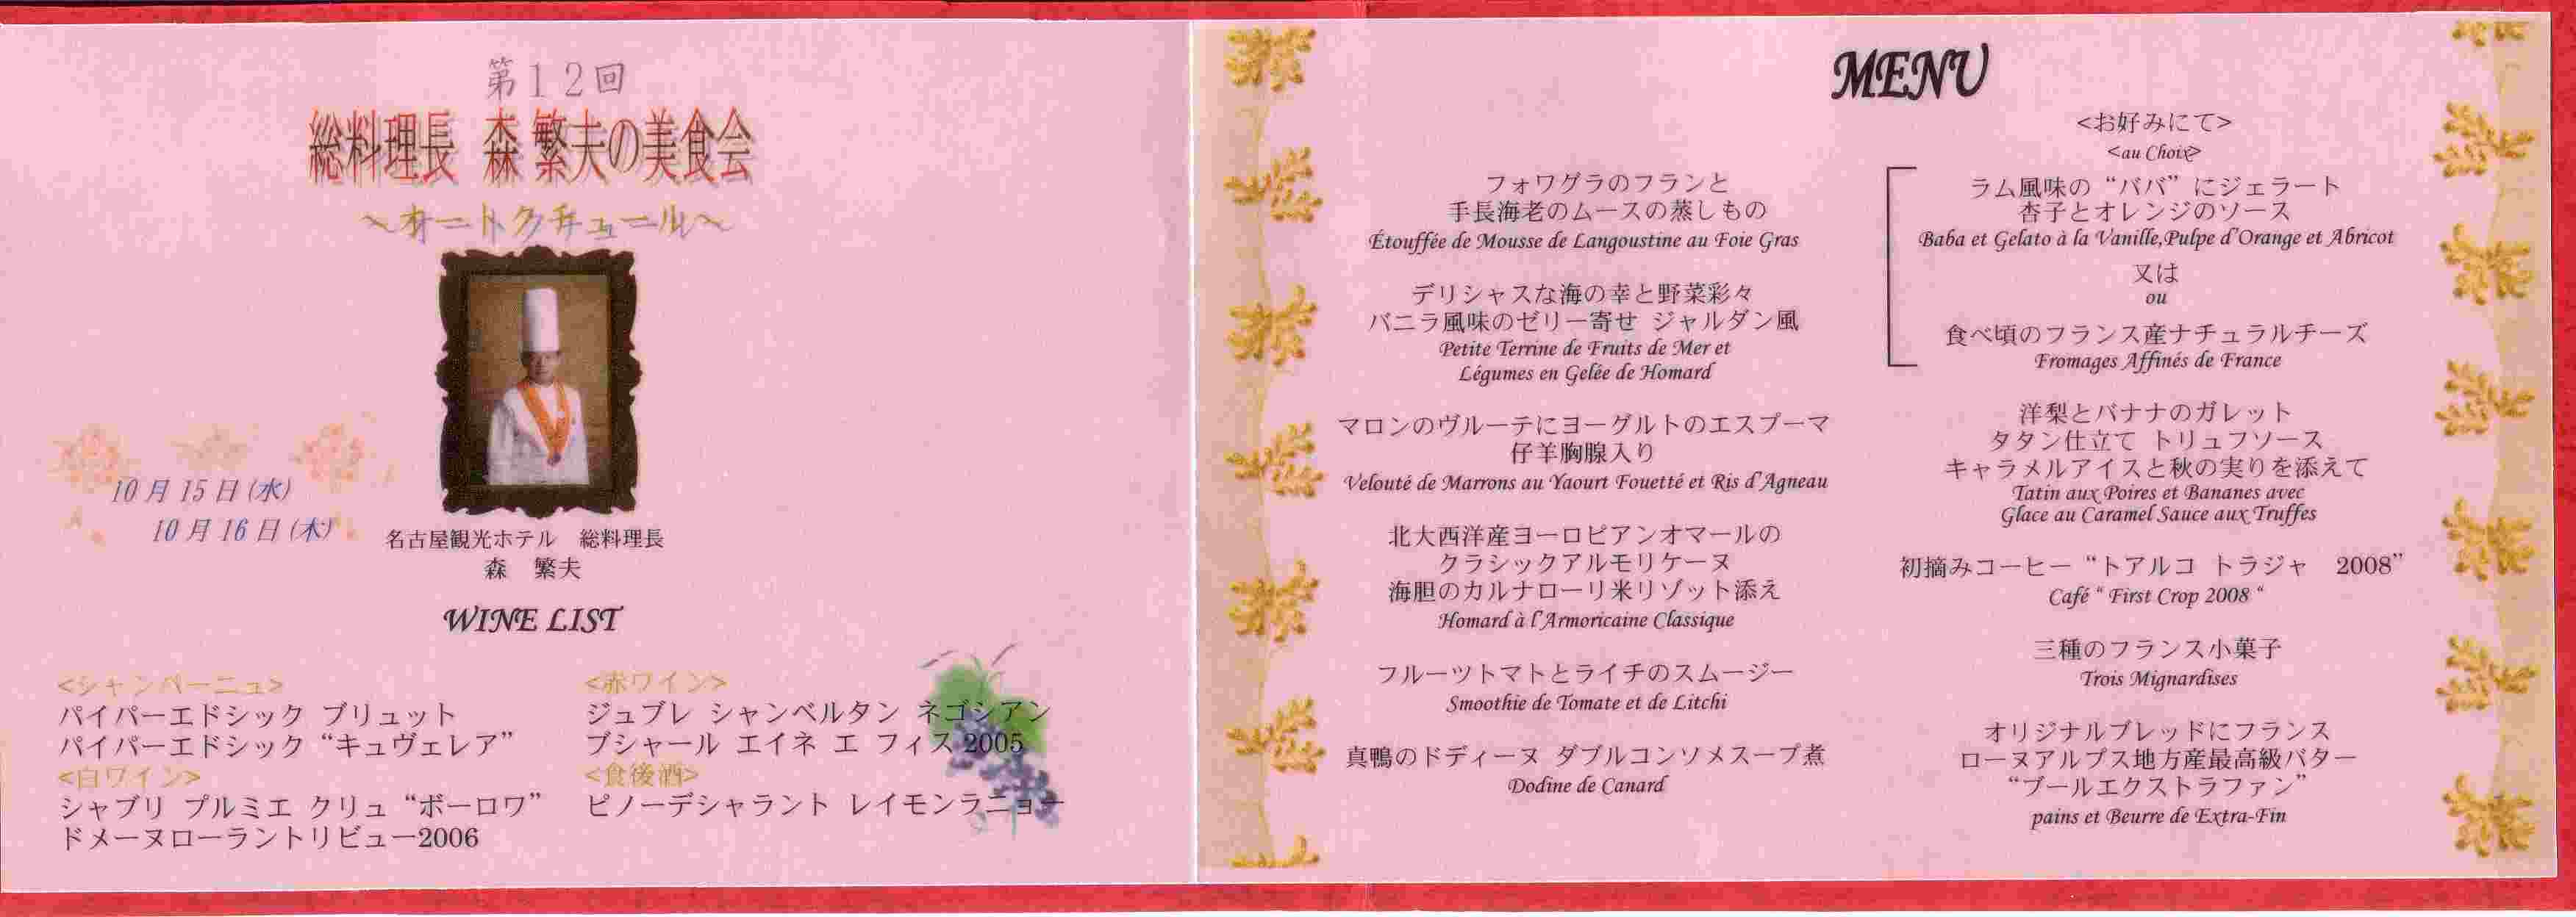 第１２回
総料理長 森 繁夫の美食会
～オートクチュール～
10月15日(水)
10月16日(木)
名古屋観光ホテル 総料理長
森 繁夫
WINE LIST
<シャンペーニュ>
パイパーエドシック ブリュット
パイパーエドシック “キュヴェレア”
<白ワイン>
シャブリ プルミエ クリュ “ボーロワ”
ドメーヌローラントリビュー2006
<赤ワイン>
ジュブレ シャンベルタン ネゴシアン
ブシャール エイネ エ フィス 2005
<食後酒>
ピノーデシャラント レイモンラニョー
MENU
フォワグラのフランと
手長海老のムースの蒸しもの
Étouffée de Mousse de Langoustine au Foie Gras
デリシャスな海の幸と野菜彩々
バニラ風味のゼリー寄せ ジャルダン風
Petite Terrine de Fruits de Mer et
Légumes en Gelée de Homard
マロンのヴルーテにヨーグルトのエスプーマ
仔羊胸腺入り
Velouté de Marrons au Yaourt Fouetté et Ris d'Agneau
北大西洋産ヨーロピアンオマールの
クラシックアルモリケーヌ
海胆のカルナローリ米リゾット添え
Homard à l'Armoricaine Classique
フルーツトマトとライチのスムージー
Smoothie de Tomate et de Litchi
真鴨のドディーヌ ダブルコンソメスープ煮
Dodine de Canard
<お好みにて>
<au Choix>
ラム風味の “ババ” にジェラート
杏子とオレンジのソース
Baba et Gelato à la Vanille,Pulpe d'Orange et Abricot
又は
ou
食べ頃のフランス産ナチュラルチーズ
Fromages Affinés de France
洋梨とバナナのガレット
タタン仕立て トリュフソース
キャラメルアイスと秋の実りを添えて
Tatin aux Poires et Bananes avec
Glace au Caramel Sauce aux Truffes
初摘みコーヒー “トアルコ トラジャ 2008”
Café “ First Crop 2008 “
三種のフランス小菓子
Trois Mignardises
オリジナルブレッドにフランス
ローヌアルプス地方産最高級バター
“ブールエクストラファン”
pains et Beurre de Extra-Fin